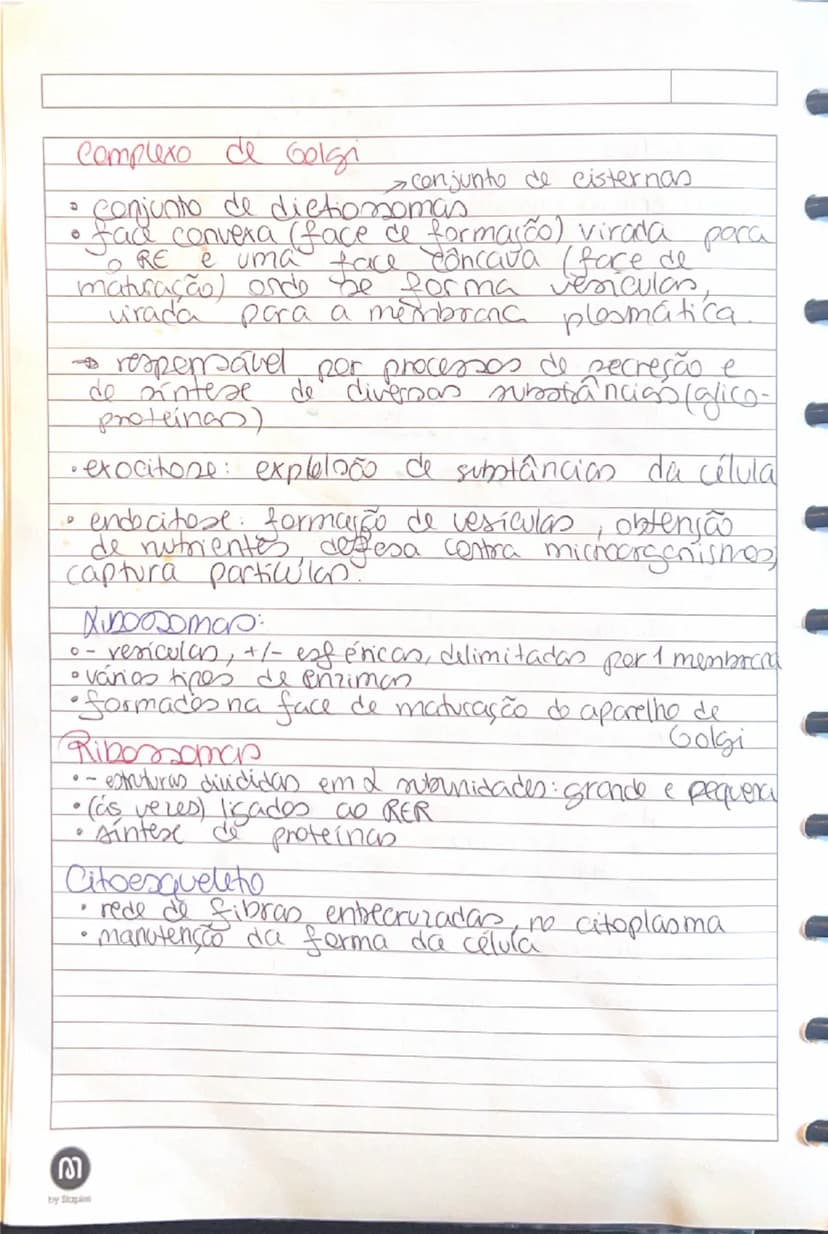 Complexo de Golgi
→ conjunto de cisternas
• conjunto de dictiossomas
• face convexa (face de formação) virada para
o RE e uma face côncava (face de
maturação) onde se forma vesículas,
virada para a membrana plasmática.
→ responsável por processos de secreção e
de síntese de diversas substâncias (glico-
proteínas)
• exocitose: explolsão de substâncias da célula
• endocitose: formação de vesículas, obtenção
de nutrientes, defesa contra microorganismos,
captura partículas.
Lisossomas:
• - vesículas, +/- esféricas, delimitadas por 1 membrana
• vários tipos de enzimas
• formados na face de maturação do aparelho de
Golgi
Ribossomas
• - estruturas divididas em 2 subunidades: grande e pequena
• (às vezes) ligados ao RER
• síntese de proteínas
Citoesqueleto
• rede de fibras entrecruzadas, no citoplasma
• manutenção da forma da célula
by Staples